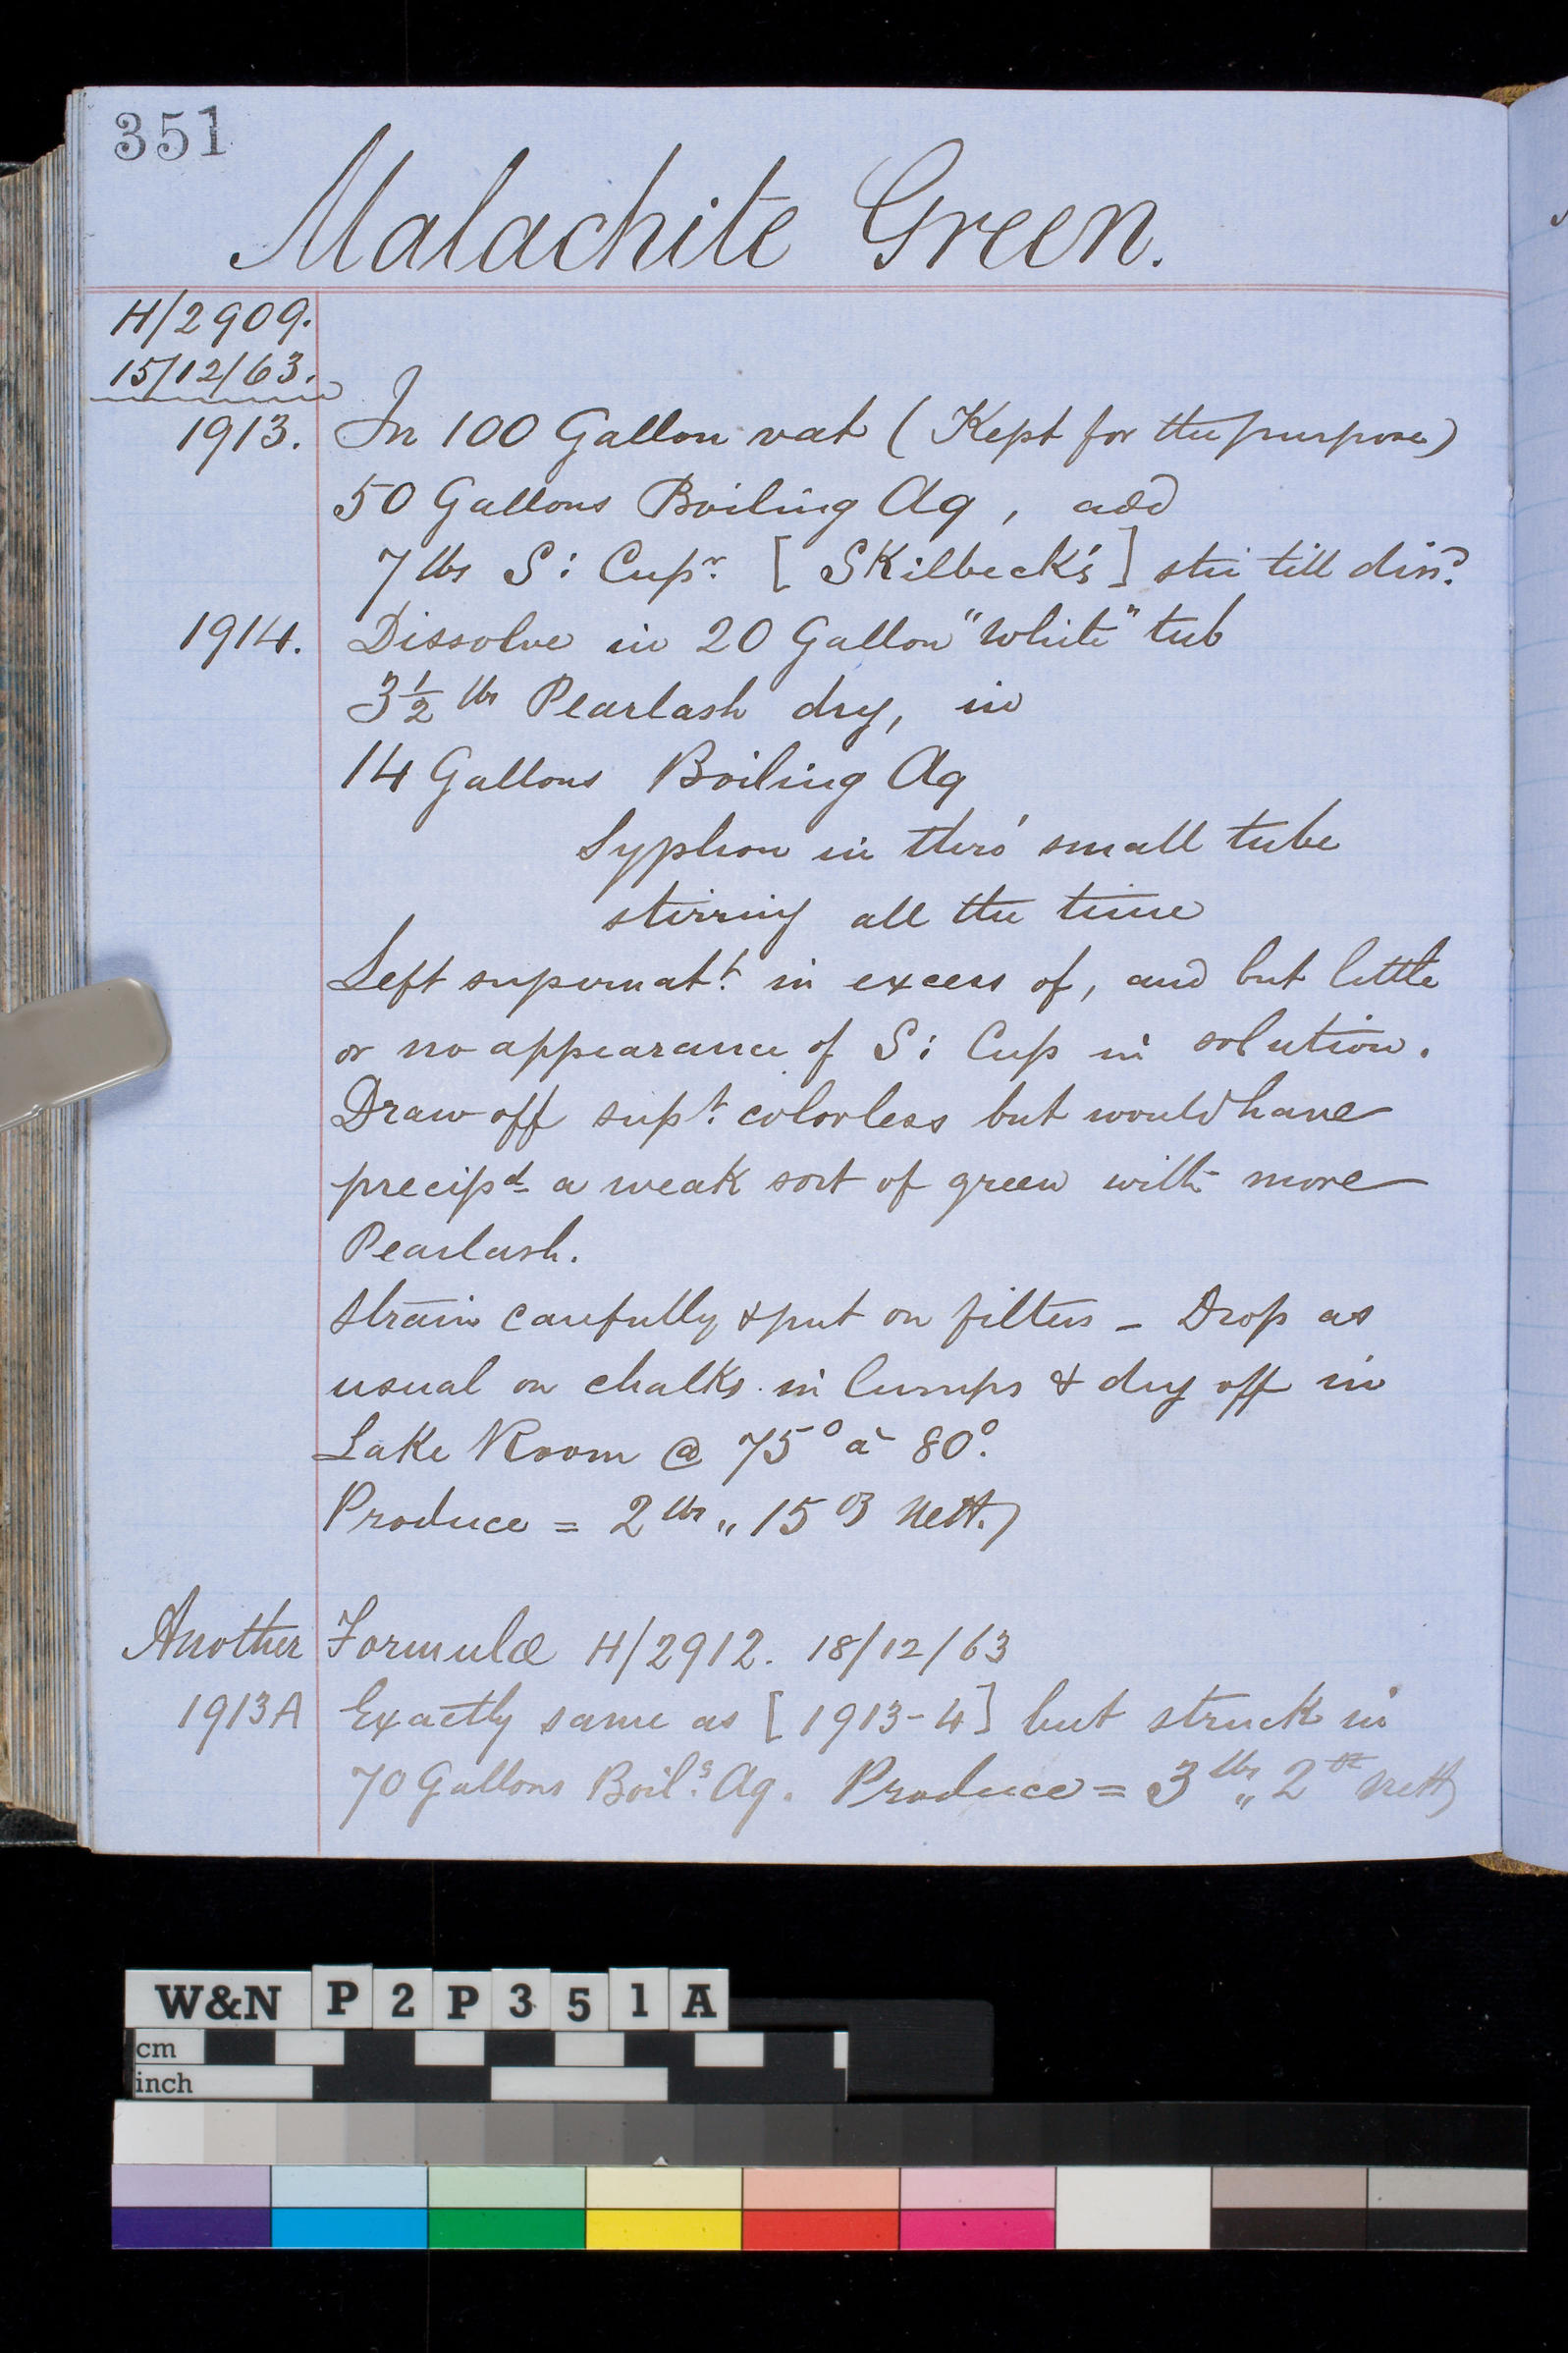 351
Malachite Green.
H/2909.
15/12/63.
1913. In 100 Gallon vat (Kept for the purpose)
50 Gallons Boiling Aq, add
7 lbs S: Cupr. [Skilbeck's] stir till disd.
1914. Dissolve in 20 Gallon "White" tub
3½ lbs Pearlash dry, in
14 Gallons Boiling Aq
Syphon in thro' small tube
stirring all the time
Left supernatt. in excess of, and but little
or no appearance of S: Cup in solution.
Draw off supt. colorless but would have
precipd a weak sort of green with more
Pearlash.
Strain carefully & put on filters - Drop as
usual on chalks in lumps & dry off in
Lake Room @ 75° à 80°.
Produce = 2 lbs „ 15 oz Nett.
Another Formula H/2912. 18/12/63
1913A Exactly same as [1913-4] but struck in
70 Gallons Boilg. Aq. Produce = 3 lbs „ 2 oz Nett
W&N P2P351A
cm
inch